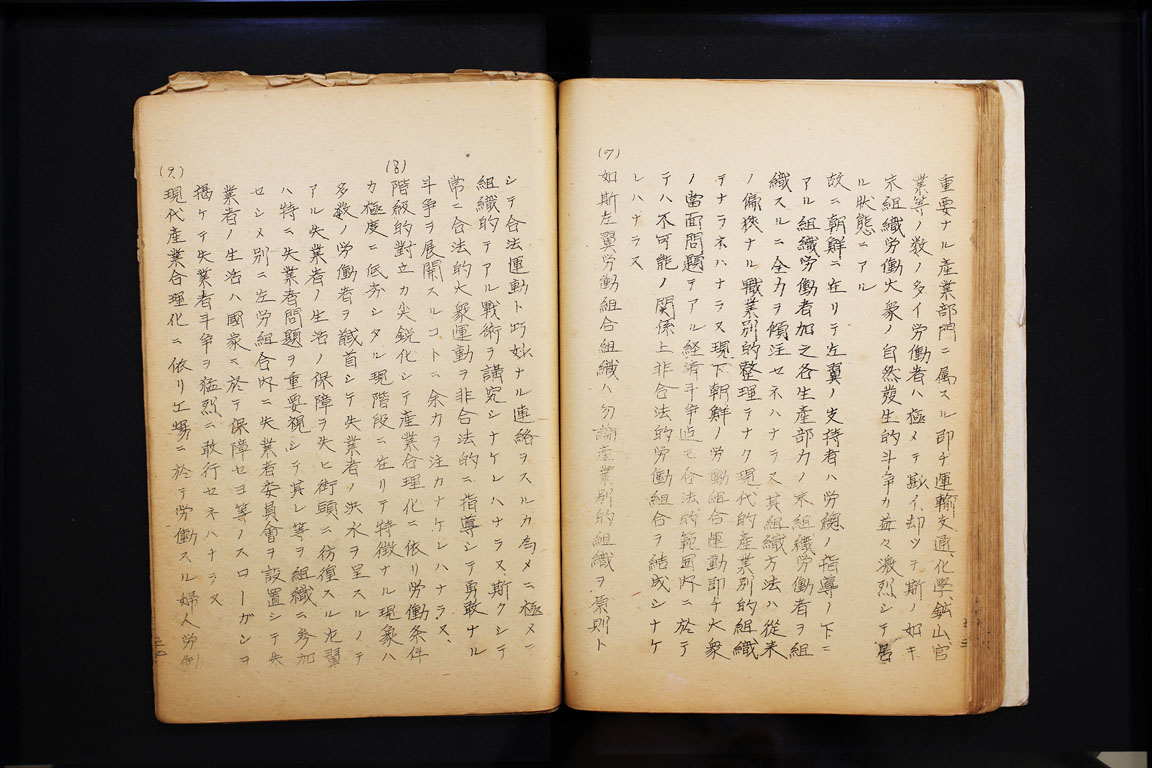 重要ナル産業部門ニ属スル即チ運輸交通、化學、鉱山、官
業等ノ数ノ多イ労働者ハ極メテ尠イ、却ツテ斯ノ如キ
未組織労働大衆ノ自然發生的斗争カ益々激烈シテ居
ル状態ニアル
故ニ朝鮮ニ在リテ左翼ノ支持者ハ労總ノ指導ノ下ニ
アル組織労働者加之各生産部カノ未組織労働者ヲ組
織スルニ全力ヲ傾注セネハナラス其組織方法ハ従来
ノ偏狭ナル職業別的整理テナク現代的産業別的組織
テナラネハナラス現下朝鮮ノ労働組合運動即チ大衆
ノ當面問題テアル経済斗争迄モ合法的範囲内ニ於テ
テハ不可能ノ関係上非合法的労働組合ヲ結成シナケ
レハナラス
(7)
如斯左翼労働組合組織ハ勿論産業別的組織ヲ原則ト
シテ合法運動ト巧妙ナル連絡ヲスルカ為メニ極メテ
組織的テアル戦術ヲ講究シナケレハナラス斯クシテ
常ニ合法的大衆運動ヲ非合法的ニ指導シテ勇敢ナル
斗争ヲ展開スルコトニ余力ヲ注カナケレハナラス、
(8)
階級的對立カ尖鋭化シテ産業合理化ニ依リ労働条件
カ極度ニ低劣シタル現階段ニ在リテ特徴ナル現象ハ
多数ノ労働者ヲ馘首シテ失業者ノ洪水ヲ呈スルノテ
アル失業者ノ生活ノ保障ヲ失ヒ街頭ニ彷復スル左翼
ハ特ニ失業者問題ヲ重要視シテ其レ等ヲ組織ニ参加
セシメ別ニ左労組合内ニ失業者委員會ヲ設置シテ失
業者ノ生活ハ國家ニ於テ保障セヨ等ノスローガンヲ
揭ケテ失業者斗争ヲ猛烈ニ敢行セネハナラス
(9)
現代産業合理化ニ依リ工場ニ於テ労働スル婦人労働